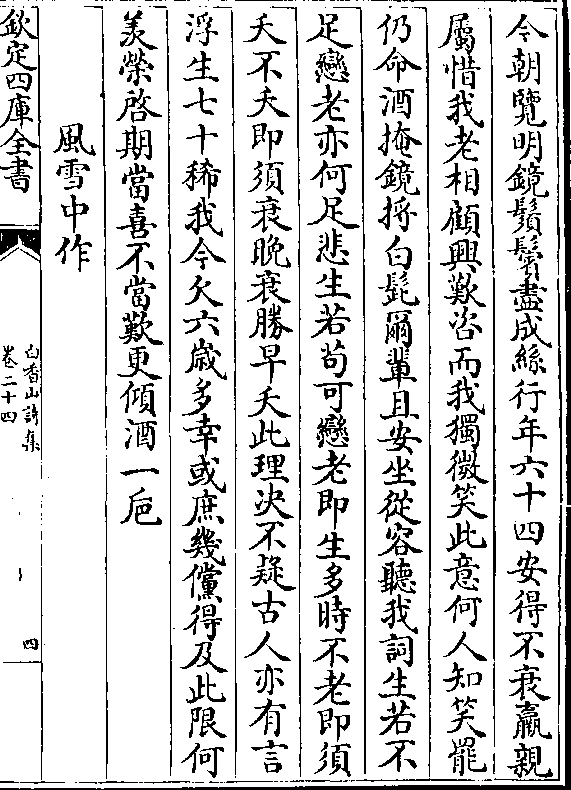 今朝覽明鏡鬚鬢盡成絲行年六十四安得不衰羸親
屬惜我老相顧興歎咨而我獨微笑此意何人知笑罷
仍命酒掩鏡捋白髭爾輩且安坐從容聽我詞生若不
足戀老亦何足悲生若苟可戀老即生多時不老即須
夭不夭即須衰晚衰勝早夭此理决不疑古人亦有言
浮生七十稀我今欠六歲多幸或庶幾儻得及此限何
羨榮啓期當喜不當歎更傾酒一巵
風雪中作
欽定四庫全書
白香山詩集
卷二十四
四